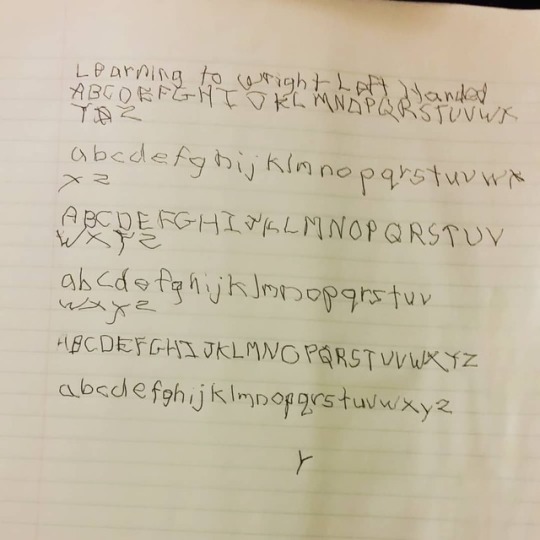 Learning to wright Left Handed
ABCDEFGHIJKLMNOPQRSTUVWX
YZ
abcdefghijklmnopqrstuvwx
xz
ABCDEFGHIJKLMNOPQRSTUV
WXYZ
abcdefghijklmnopqrstuv
wxyz
ABCDEFGHIJKLMNOPQRSTUVWXYZ
abcdefghijklmnopqrstuvwxyz
Y